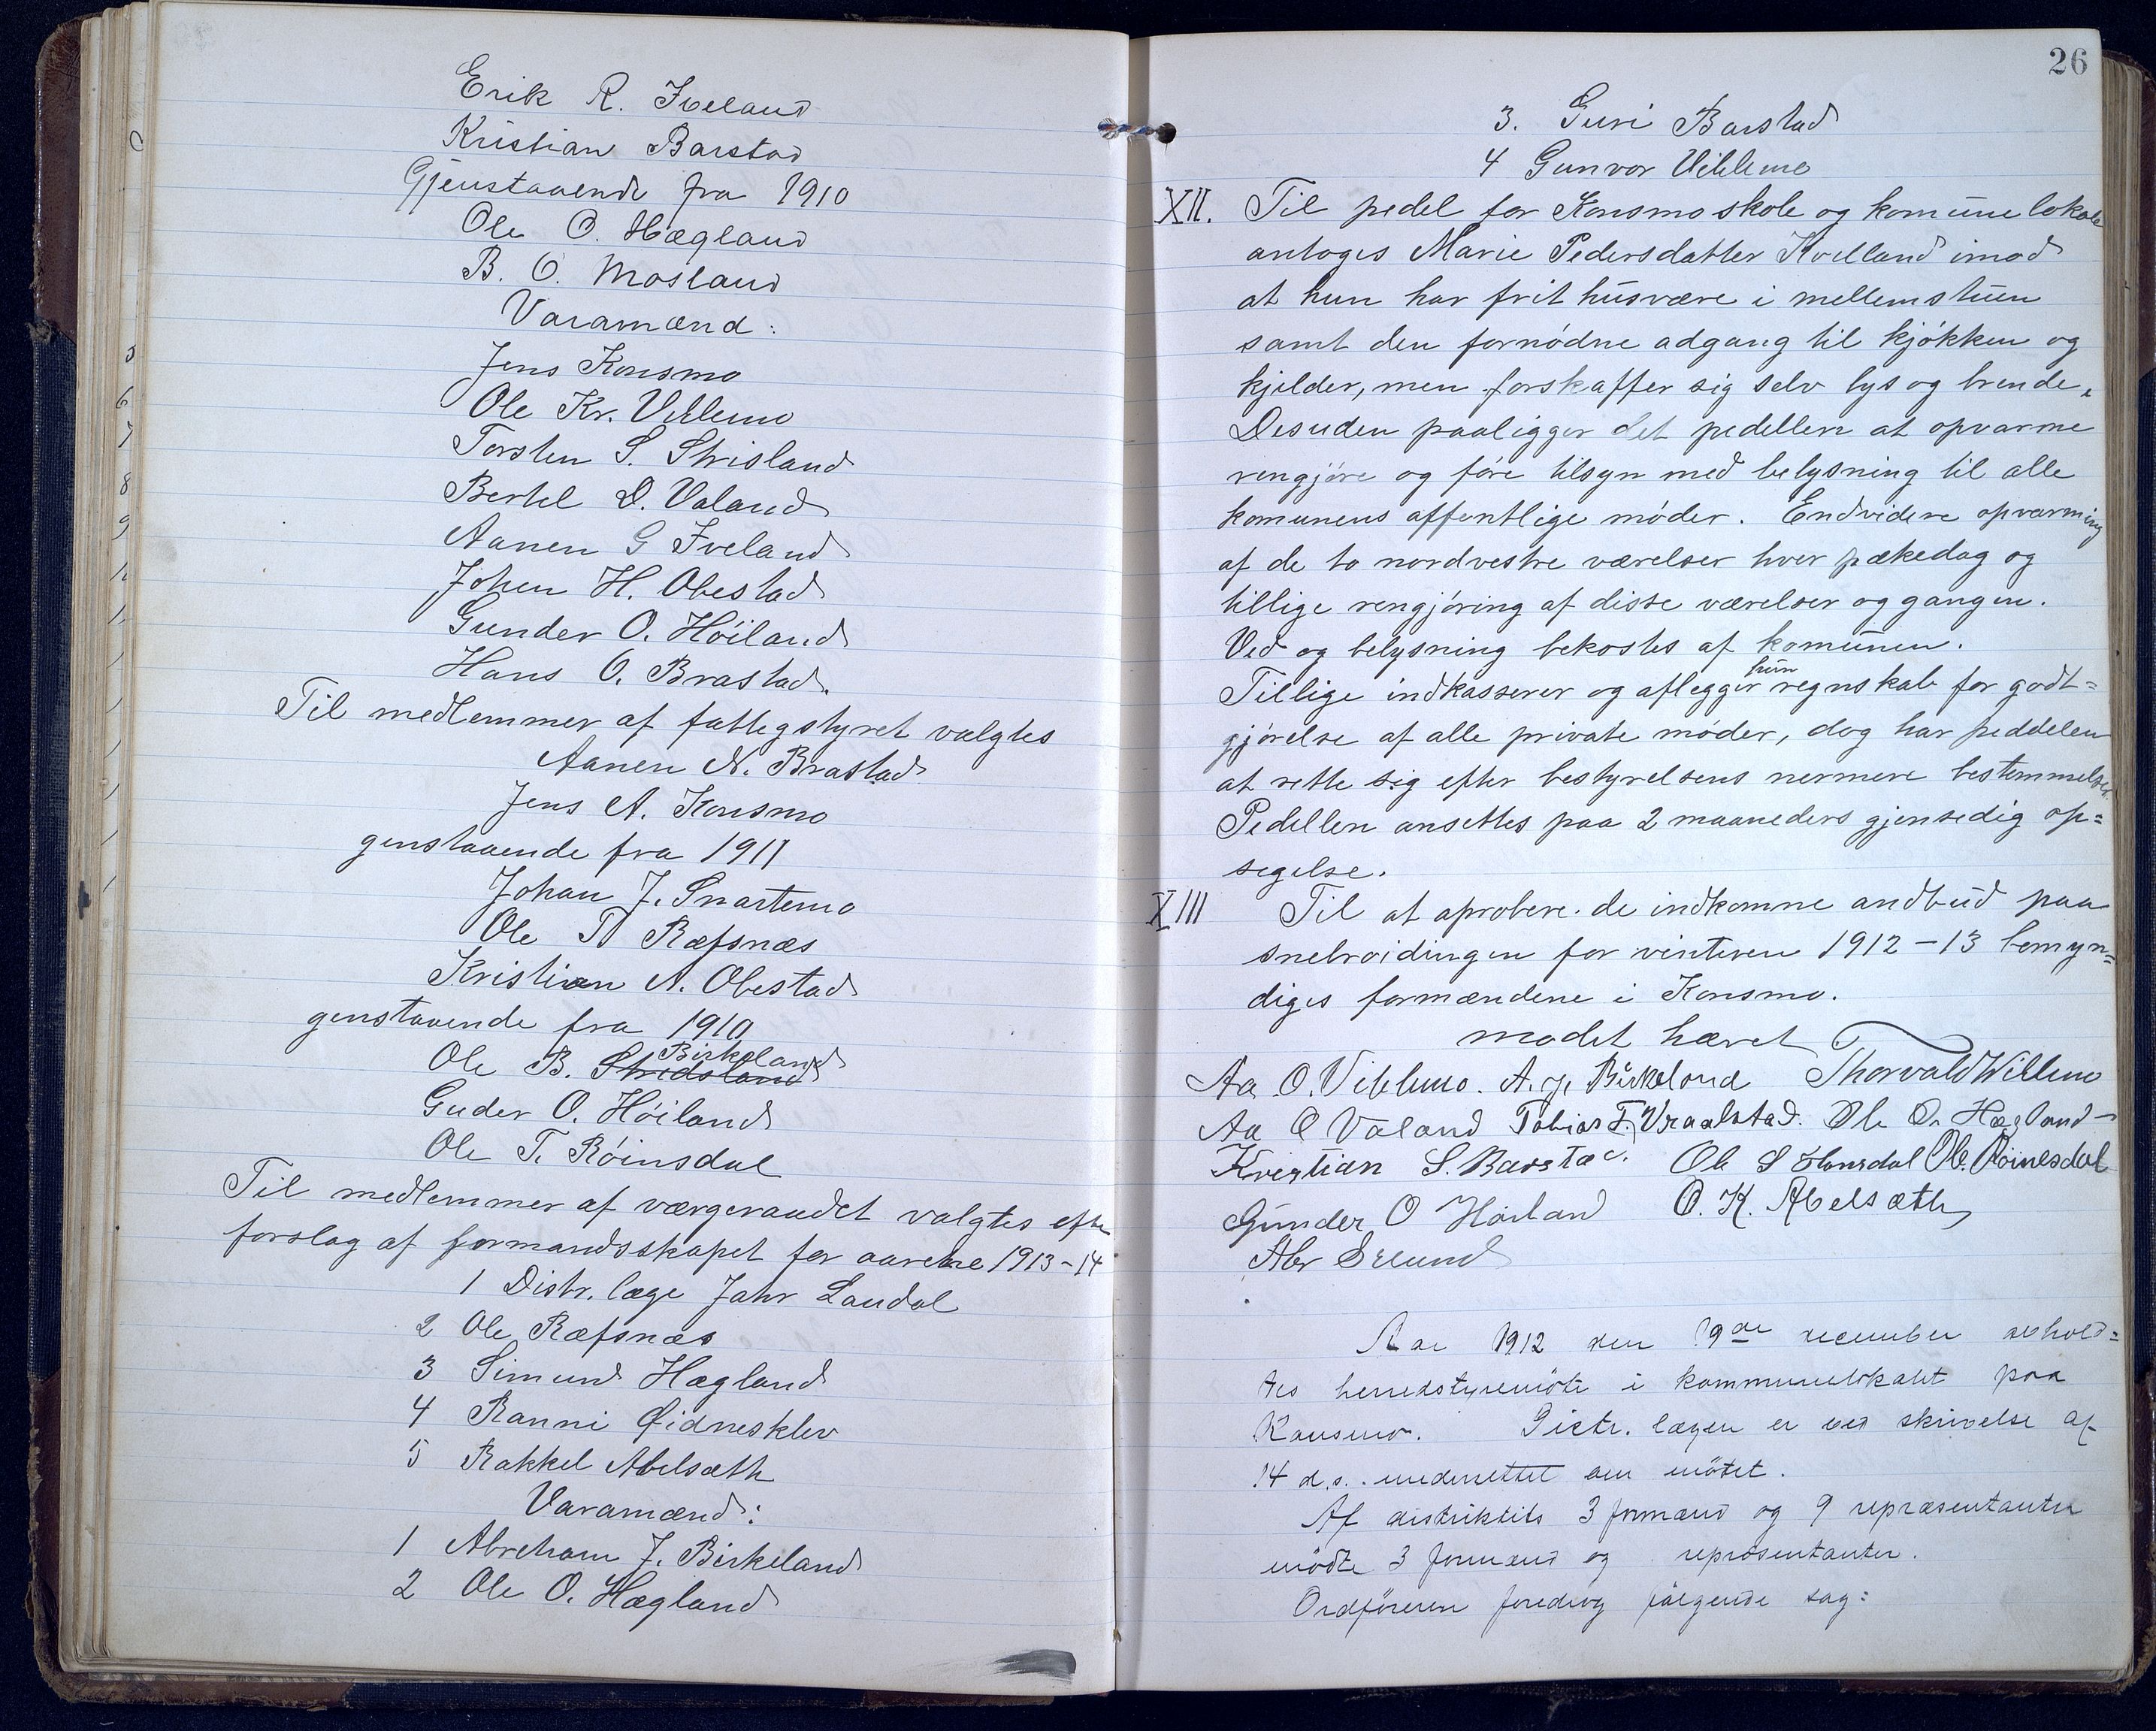 Erik R. Iveland
Kristian Barstad
Gjenstaaende fra 1910
Ole O. Hægland
B. O. Mosland
Varamænd:
Jens Konsmo
Ole Kr. Vibbmo
Torsten S. Strisland
Bertel D. Valand
Aanen G Iveland
Johan H. Obestad
Gunder O. Höiland
Hans O. Brastad.
Til medlemmer af fattigstyret valgtes
Aanen N. Brastad
Jens A. Konsmo
genstaaende fra 1911
Johan J. Snartemo
Ole T Ræfsnæs
Kristian A. Obestad
genstaaende fra 1910
Birkeland
Ole B. Stridsland
Guder O. Höiland
Ole T. Röinsdal
Til medlemmer af værgeraadet valgtes efter
forslag af formandsskapet for aarene 1913-14
1 Distr. læge Jahr Laudal
2 Ole Ræfsnæs
3 Simund Hægland
4 Ranni Øidnesklev
5 Rakkel Abelsæth
Varamænd:
1 Abreham J. Birkeland
2 Ole O. Hægland
26
3. Guri Barstad
4 Gunvor Vibbmo
XII. Til pedel for Konsmo skole og komune lokale
antoges Marie Pedersdatter Kvelland imod
at hun har frit husvære i mellemstuen
samt den fornödne adgang til kjökken og
kjelder, men forskaffer sig selv lys og brende.
Desuden paaligger det pedellen at opvarme
rengjöre og före tilsyn med belysning til alle
komunens offentlige möder. Endvidere opvarming
af de to nordvestre værelser hver pækedag og
tillige rengjöring af disse værelser og gangen.
Ved og belysning bekostes af komunen.
hun
Tillige indkasserer og aflegger regnskab for godt=
gjörelse af alle private möder, dog har peddelen
at rette sig efter bestyrelsens nermere bestemmelser.
Pedellen ansettes paa 2 maaneders gjensedig op=
segelse.
XIII Til at aprobere de indkomne andbud paa
snebroidingen for vinteren 1912-13 bemyn=
diges formændene i Konsmo.
mødet hævet
Aa. O. Vibbmo. A. J. Birkeland Thorvald Willemo
Aa O Valand Tobias T. Vraalstad. Ole O. Hægland
Kristian S. Barstad. Ole S Homsdal Ole Röinesdal
Gunder O Höiland O. K. Abelsæth
Abr Eelund
Aar 1912 den 19de december avhold=
tes herredstyremöte i kommunelokalet paa
Konsmo. Distr. lægen er ved skrivelse af
14 d.s. underrettet om mötet.
Af distriktets 3 formænd og 9 repræsentanter
mödte 3 formænd og repræsentanter.
Ordföreren foredrog fölgende sag: